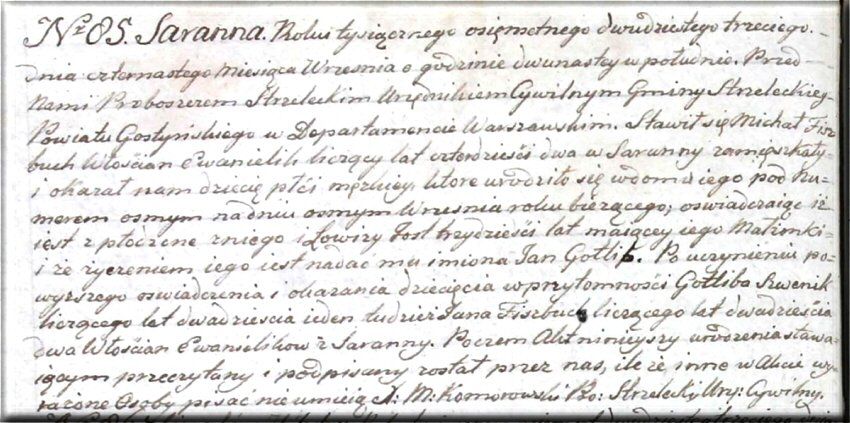 Nº 85. Saranna. Roku tysiącznego osięmsetnego dwudziestego trzeciego.
dnia czternastego Miesiąca Wrzesnia o godzinie dwunastey w południe. Przed
Nami Proboszczem Strzeleckim Urzędnikiem Cywilnym Gminy Strzeleckiey
Powiatu Gostyńskiego w Departamencie Warszawskim. Stawił się Michał Fisz
buch Włościan Ewanielik liczący lat czterdzieści dwa w Saranny zamięszkały
i okazał nam dziecię płci męzkiey, które urodziło się w domu iego pod Nu-
merem osmym na dniu osmym Wrzesnia roku bierzącego, oswiadczaiąc iz
iest z płodzone z niego i Lowizy Jost trzydzieści lat maiącey iego Małzonki-
i ze zyczeniem iego iest nadać mu imiona Jan Gotlib. Po uczynieniu po-
wyzszego oswiadczenia i okazania dziecięcia w przytomności Gotliba Szwenik
liczącego lat dwadziescia ieden tudziez Jana Fiszbuch liczącego lat dwadzieścia
dwa Włościan Ewanielikow z Saranny. Poczem Akt ninieyszy urodzenia stawa-
iącym przeczytany i podpisany został przez nas, ile ze inne w Akcie wy-
razone Osoby pisać nieumieią X: M: Komorowski Pro: Strzelecki Urz: Cywilny.